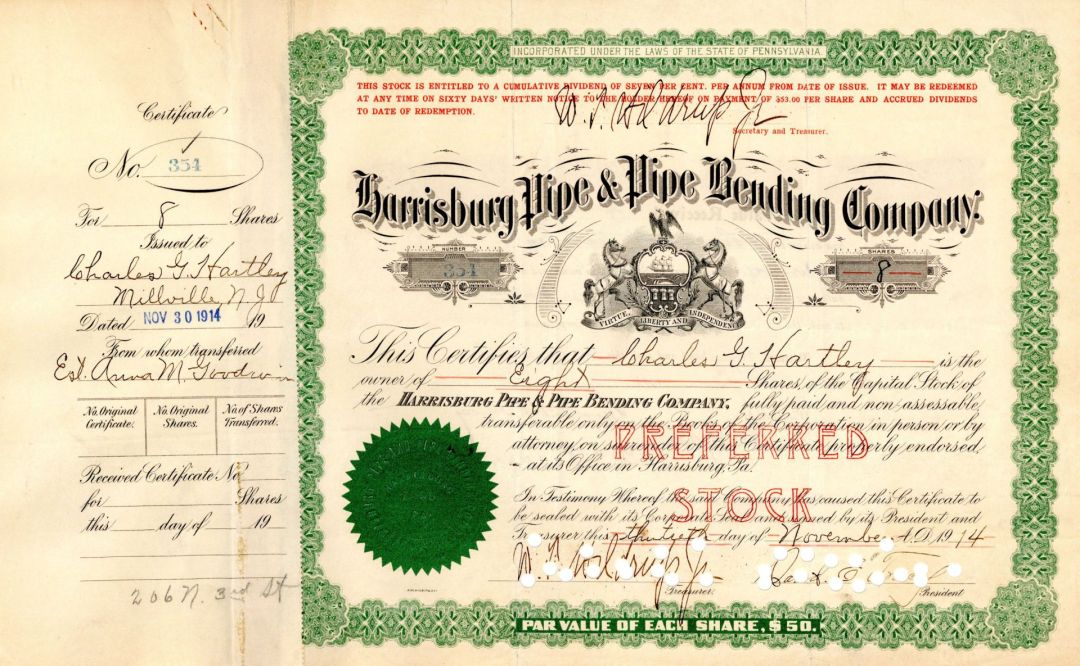 Certificate
No. 354
For 8 Shares
Issued to
Charles G. Hartley
Millville, N.J.
Dated NOV 30 1914 19
From whom transferred
Est. Anna M. Goodwin
No. Original Certificate.
No. Original Shares.
No. of Shares Transferred.
Received Certificate No.
for Shares
this day of 19
206 N. 3rd St
INCORPORATED UNDER THE LAWS OF THE STATE OF PENNSYLVANIA.
THIS STOCK IS ENTITLED TO A CUMULATIVE DIVIDEND OF SEVEN PER CENT. PER ANNUM FROM DATE OF ISSUE. IT MAY BE REDEEMED
AT ANY TIME ON SIXTY DAYS' WRITTEN NOTICE TO THE HOLDER HEREOF ON PAYMENT OF $53.00 PER SHARE AND ACCRUED DIVIDENDS
TO DATE OF REDEMPTION.
Secretary and Treasurer.
Harrisburg Pipe & Pipe Bending Company.
NUMBER
354
SHARES
8
VIRTUE, LIBERTY AND INDEPENDENCE
This Certifies that Charles G. Hartley is the
owner of Eight Shares, of the Capital Stock of
the HARRISBURG PIPE & PIPE BENDING COMPANY, fully paid and non-assessable,
transferable only on the Books of the Corporation in person or by
attorney on surrender of this Certificate properly endorsed
at its Office in Harrisburg, Pa.
PREFERRED
STOCK
In Testimony Whereof the said Company has caused this Certificate to
be sealed with its Corporate Seal and signed by its President and
Treasurer this thirtieth day of November A.D. 1914
Treasurer.
President
PAR VALUE OF EACH SHARE, $50.